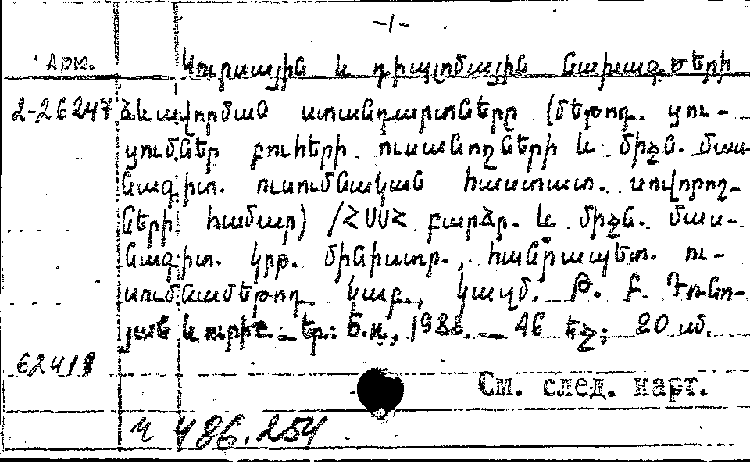 -1-
Арм. Կուրսային և դիպլոմային նախագծերի
2-26247 ձևավորման ստանդարտները (մեթոդ. ցու-
ցումներ բուհերի ուսանողների և միջն. մաս-
նագիտ. ուսումնական հաստատ. սովորող-
ների համար) /ՀՍՍՀ բարձր. և միջն. մաս-
նագիտ. կրթ. մինիստր., հանրապետ. ու-
սումնամեթոդ. կաբ., կազմ. Թ. Բ.
յան և ուրիշ. – Եր.: Բ.ի., 198 — 46 եջ; 20 սմ.
62418
См. след. карт.
ч 486.254